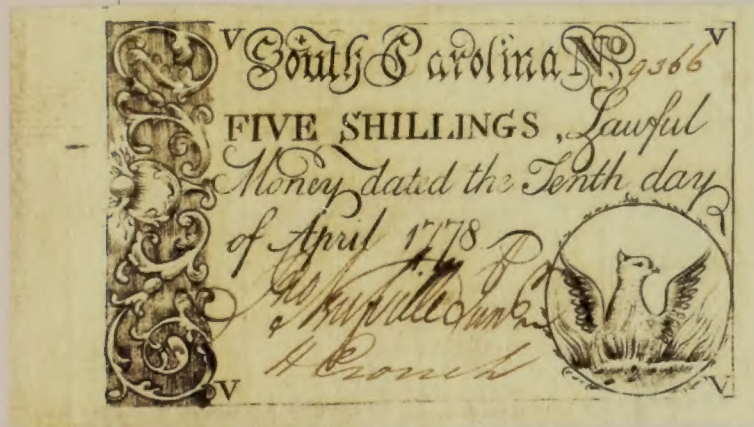 V South Carolina No. 9366 V
FIVE SHILLINGS, Lawful
Money dated the Tenth day
of April 1778
Jno
H Crouch
V V